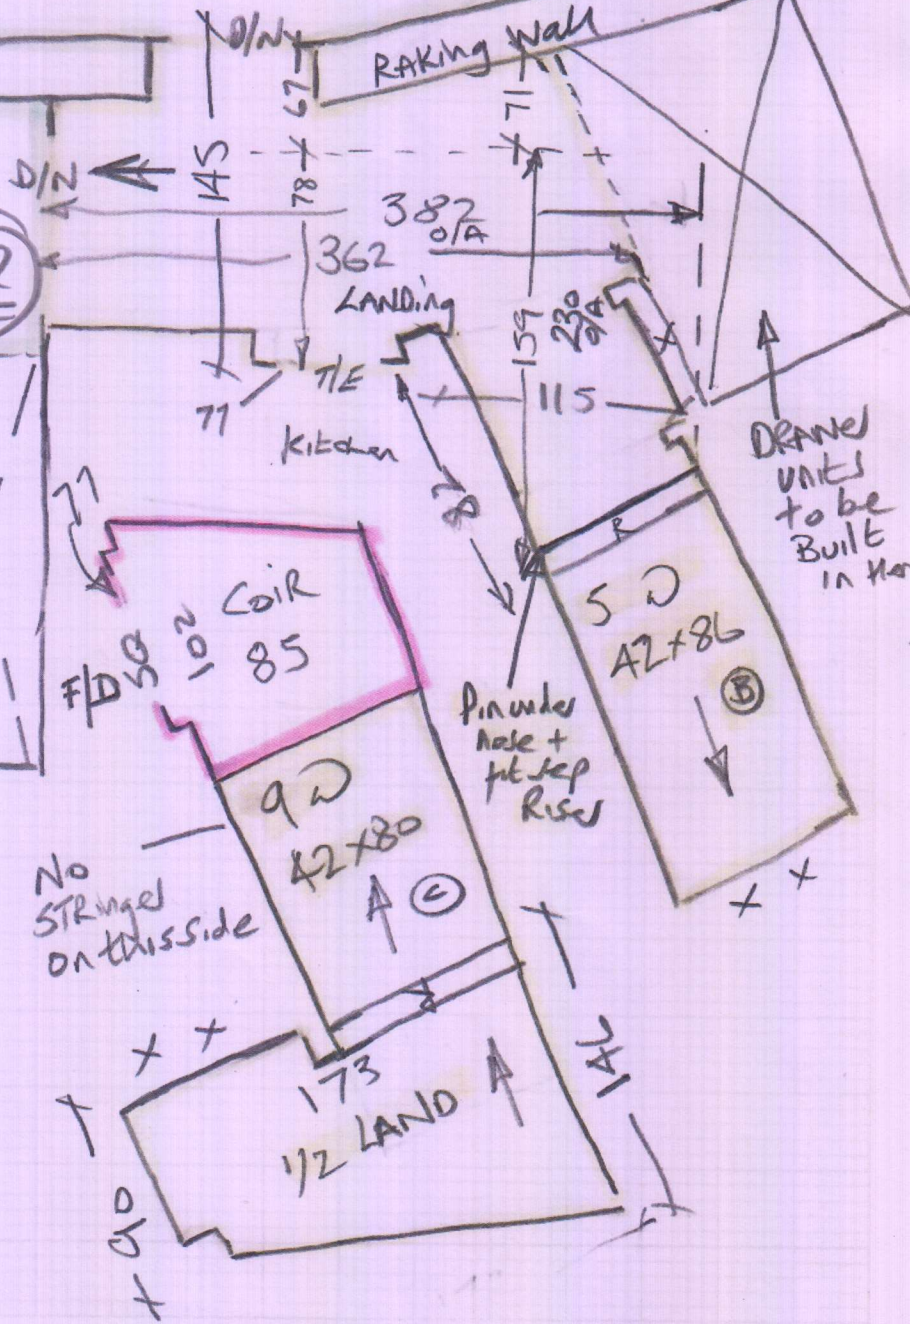 D/Ny
RAKing wall
67
71
145
D/2
78
382
O/A
362
LANDing
230
O/A
159
T/E
115
77
Kitchen
87
DRAWeR
units
to be
Built
in Here
77
R
COIR
85
102
50
F/D
5 W
42x86
B
Pin under
nose +
fit step
Riser
9 W
42x80
C
No
STRinger
on this side
173
1/2 LAND
90